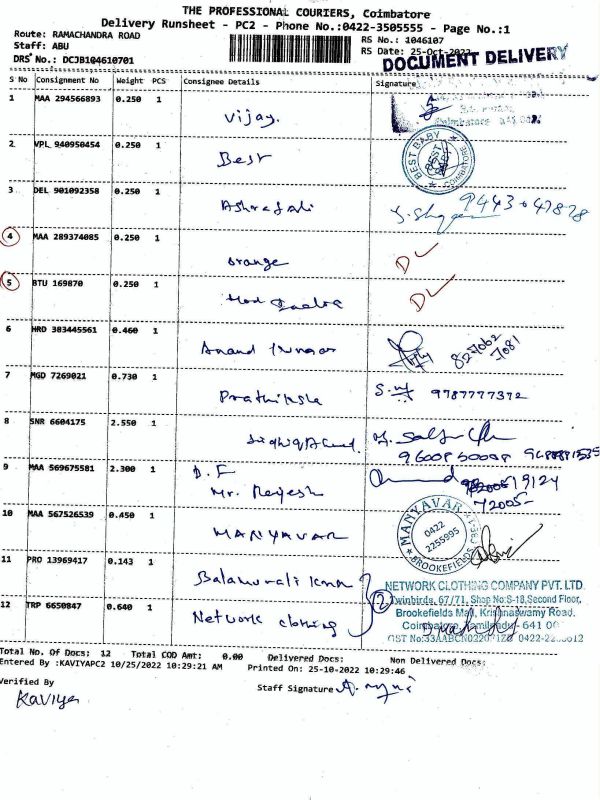 THE PROFESSIONAL COURIERS, Coimbatore
Delivery Runsheet - PC2 - Phone No.:0422-3505555 - Page No.:1
Route: RAMACHANDRA ROAD
Staff: ABU
DRS No.: DCJB104610701
RS No.: 1046107
RS Date: 25-Oct-2022
DOCUMENT DELIVERY
S No Consignment No Weight PCS Consignee Details Signature
1 MAA 294566893 0.250 1 Vijay.
Coimbatore
2 VPL 940950454 0.250 1 Best
BEST BABY COIMBATORE
3 DEL 901092358 0.250 1 Ashrafali
4 MAA 289374085 0.250 1 Orange DL
5 BTU 169870 0.250 1 DL
6 HRD 383445561 0.460 1 Anand Kumar
7 MGD 7269021 0.730 1 Prathiksha 9787777372
8 SNR 6604175 2.550 1
9 MAA 569675581 2.300 1 D.F
Mr. Rajesh
10 MAA 567526539 0.450 1 MANYAVAR
MANYAVAR 0422 2255995 BROOKEFIELDS
11 PRO 13969417 0.143 1 Balamurali
12 TRP 6650847 0.640 1 Network clothing 2
NETWORK CLOTHING COMPANY PVT. LTD.
Twinbirds, 67/71, Shop No:S-18,Second Floor,
Brookefields Mall, Krishnaswamy Road,
Coimbatore, Tamilnadu- 641 00
Total No. Of Docs: 12 Total COD Amt: 0.00 Delivered Docs: Non Delivered Docs:
Entered By :KAVIYAPC2 10/25/2022 10:29:21 AM Printed On: 25-10-2022 10:29:46
Verified By
Kaviya
Staff Signature